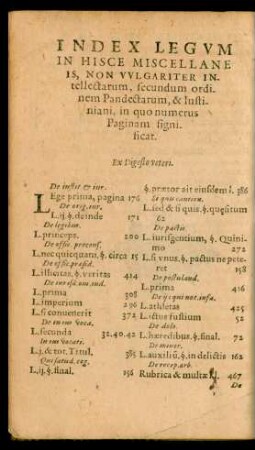 INDEX LEGVM
IN HISCE MISCELLANE
IS, NON VVLGARITER IN-
tellectarum, secundum ordi
nem Pandectarum, & Iusti
niani, in quo numerus
Paginam signi
ficat.
Ex Digesto veteri.
De iustit & iur.
LEge prima, pagina 176
De orig. iur.
L. ij. §. deinde 171
De legibus.
L. princeps. 200
De offic. procons.
L. nec quicquam. §. circa 15
De offic. præsid.
L. illicitas. §. veritas 424
L. prima 308
L. imperium 296
L. si conuenerit 372
L. secunda 32.40.42
L. j. & tot. Titul. 385
L. ij. §. final. 156
§. prætor ait eiusdem l. 386
Si quis caution.
L. sed & si quis. §. quæsitum
62
De pactis.
L. iurisgentium, §. Quini-
mo 272
L. si vnus. §. pactus ne pete-
ret 158
De postuland.
L. prima 416
L. athletas 425
L. ictus fustium 52
De dolo.
L. hæredibus. §. final. 72
De minor.
L. auxiliū. §. in delictis 162
De recep. arb.
Rubrica & multæ 467
De